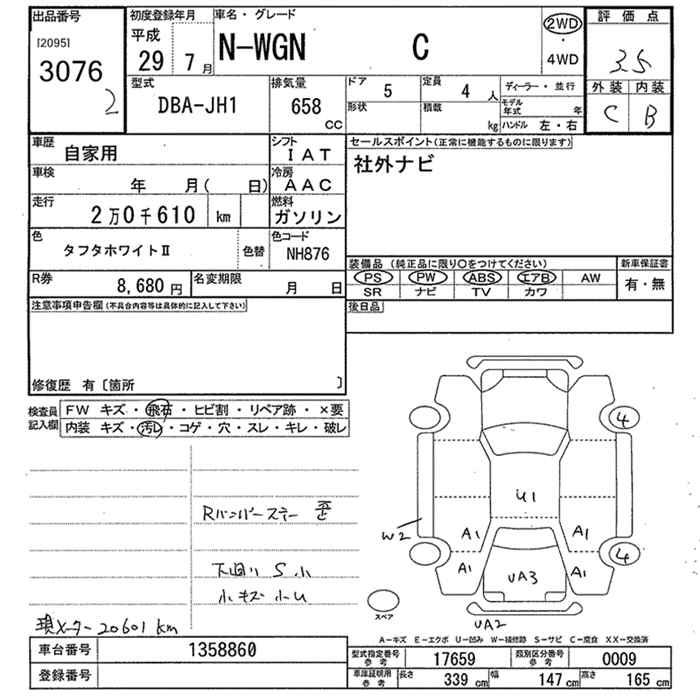 出品番号
[2095]
3076
2
初度登録年月
平成
29 7月
車名・グレード
N-WGN C
2WD
・
4WD
評価点
3.5
外装 内装
C B
型式
DBA-JH1
排気量
658
CC
ドア 5
定員 4人
形状
積載 kg
ディーラー・並行
モデル年式 年
ハンドル 左・右
車歴
自家用
シフト
IAT
車検
年 月( 日)
冷房
AAC
走行
2万0千610 km
燃料
ガソリン
色
タフタホワイトⅡ
色替
色コード
NH876
R券
8,680円
名変期限
月 日
セールスポイント(正常に機能するものに限ります)
社外ナビ
装備品 (純正品に限り○をつけてください)
PS PW ABS エアB AW
SR ナビ TV カワ
新車保証書
有・無
後日品
注意事項申告欄(不具合内容等は具体的に記入して下さい)
修復歴 有〔箇所 〕
検査員記入欄
FW キズ・飛石・ヒビ割・リペア跡・×要
内装 キズ・汚レ・コゲ・穴・スレ・キレ・破レ
Rバンパーステー 歪
下廻り S小
小キズ 小U
現メーター20601km
4
U1
W2
A1 A1
4
A1 A1
UA3
スペア
UA2
A−キズ E−エクボ U−凹み W−補修跡 S−サビ C−腐食 XX−交換済
車台番号 1358860
登録番号
型式指定番号
参考
17659
類別区分番号
参考
0009
車庫証明用
参考
長さ 339cm 幅 147cm 高さ 165cm